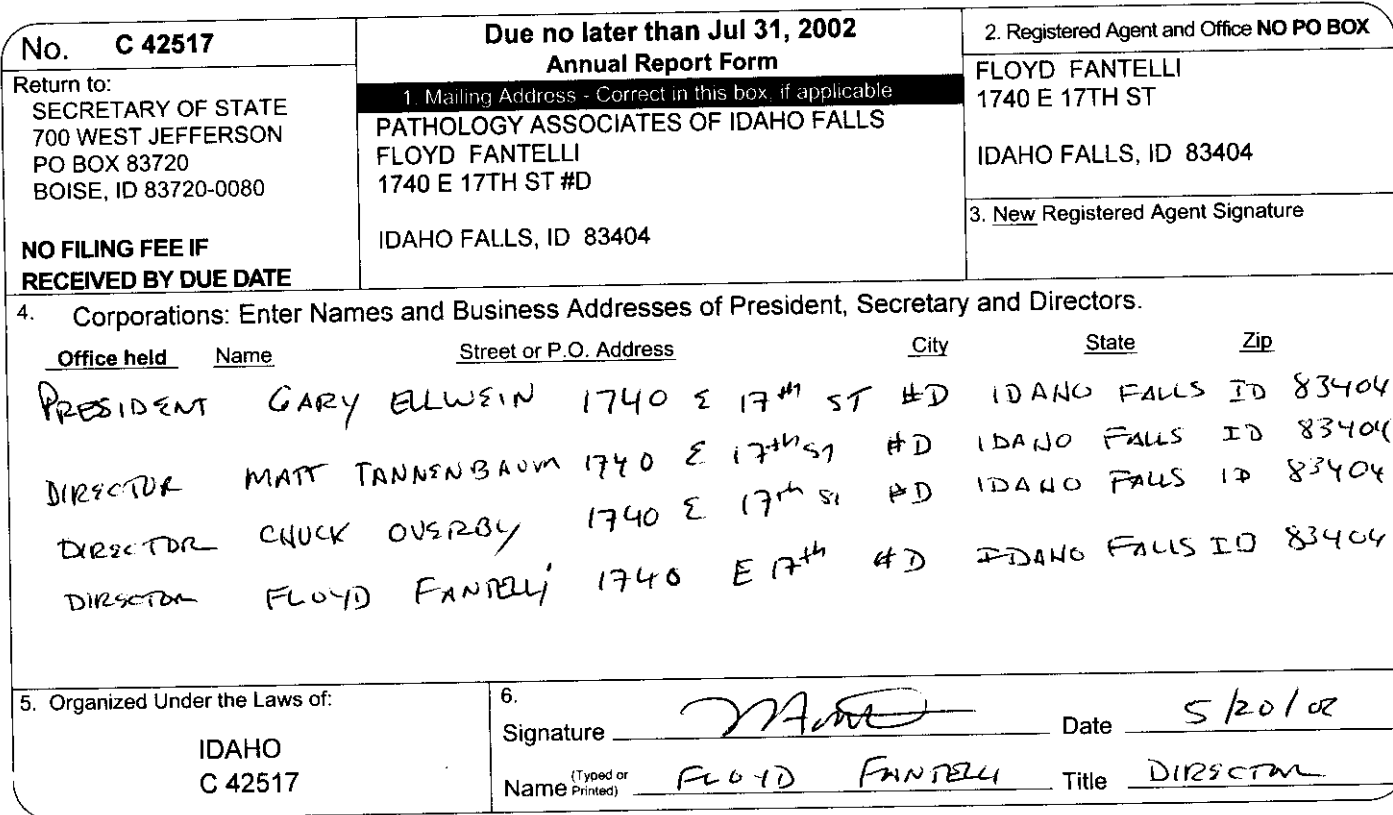 No. C 42517
Return to:
SECRETARY OF STATE
700 WEST JEFFERSON
PO BOX 83720
BOISE, ID 83720-0080
NO FILING FEE IF
RECEIVED BY DUE DATE
Due no later than Jul 31, 2002
Annual Report Form
1. Mailing Address - Correct in this box, if applicable
PATHOLOGY ASSOCIATES OF IDAHO FALLS
FLOYD FANTELLI
1740 E 17TH ST #D
IDAHO FALLS, ID 83404
2. Registered Agent and Office NO PO BOX
FLOYD FANTELLI
1740 E 17TH ST
IDAHO FALLS, ID 83404
3. New Registered Agent Signature
4. Corporations: Enter Names and Business Addresses of President, Secretary and Directors.
Office held Name Street or P.O. Address City State Zip
PRESIDENT GARY ELLWEIN 1740 E 17th ST #D IDAHO FALLS ID 83404
DIRECTOR MATT TANNENBAUM 1740 E 17th ST #D IDAHO FALLS ID 83404
DIRECTOR CHUCK OVERBY 1740 E 17th St #D IDAHO FALLS ID 83404
DIRECTOR FLOYD FANTELLI 1740 E 17th #D IDAHO FALLS ID 83404
5. Organized Under the Laws of:
IDAHO
C 42517
6.
Signature Date 5/20/02
Name (Typed or Printed) FLOYD FANTELLI Title DIRECTOR